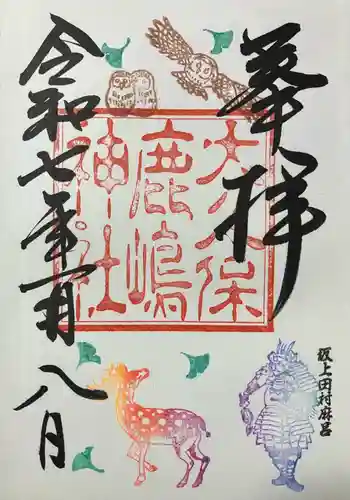 奉拝
大久保
鹿嶋
神社
令和七年一月八日
坂上田村麻呂